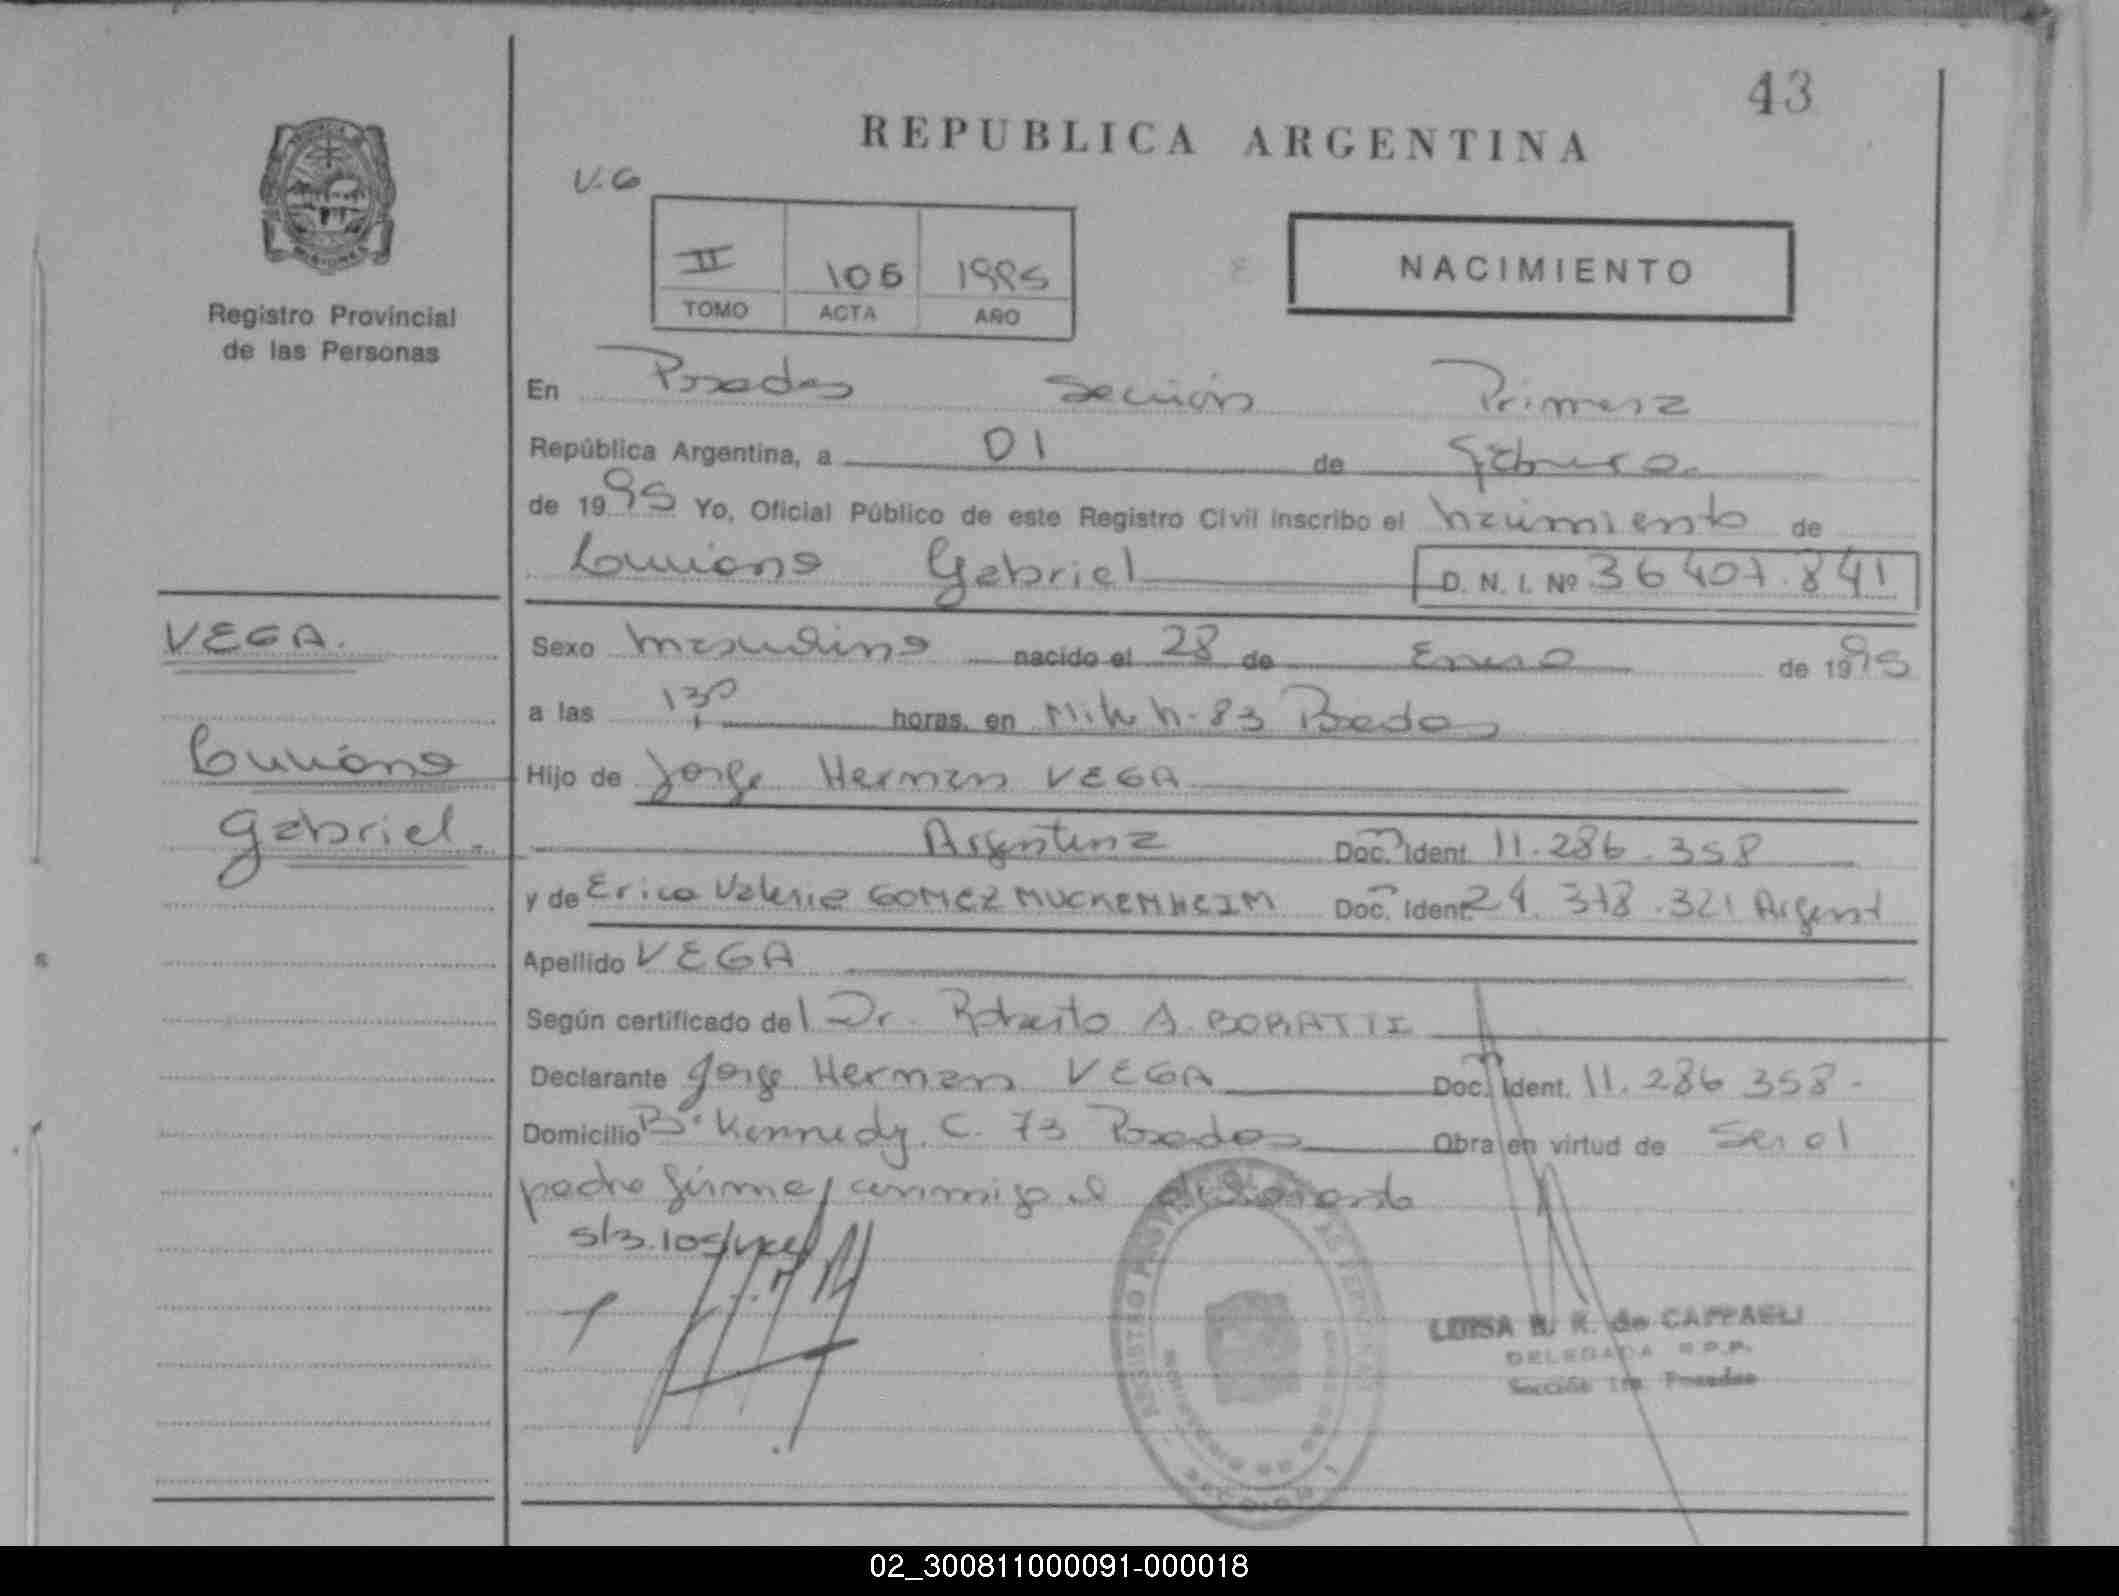 43
REPUBLICA ARGENTINA
V.G
II 106 1995
TOMO ACTA AÑO
NACIMIENTO
MISIONES
Registro Provincial
de las Personas
En Posadas Sección Primera
República Argentina, a 01 de Febrero
de 1995 Yo, Oficial Público de este Registro Civil inscribo el nacimiento de
Luciano Gabriel D. N. I. Nº 36 407.841
VEGA.
Sexo masculino nacido el 28 de Enero de 1995
a las 1 30 horas, en M.i. h-83 Posadas
Luciano
Hijo de Jorge Hernan VEGA
Gabriel.
Argentina Doc. Ident. 11.286.358
y de Erica Valeria GOMEZ MUCKENHEIM Doc. Ident. 24.378.321 Argent
Apellido VEGA
Según certificado del Dr. Roberto A. BORATTI
Declarante Jorge Hernan VEGA Doc. Ident. 11.286 358-
Domicilio Bº Kennedy. C. 73 Posadas Obra en virtud de Ser el
padre firma conmigo el declarante
LUISA B. R. de CAFFAELI
DELEGADA R.P.P.
Sección 1ra. Posadas
REGISTRO PROVINCIAL DE LAS PERSONAS
SECCION 1
02_300811000091-000018